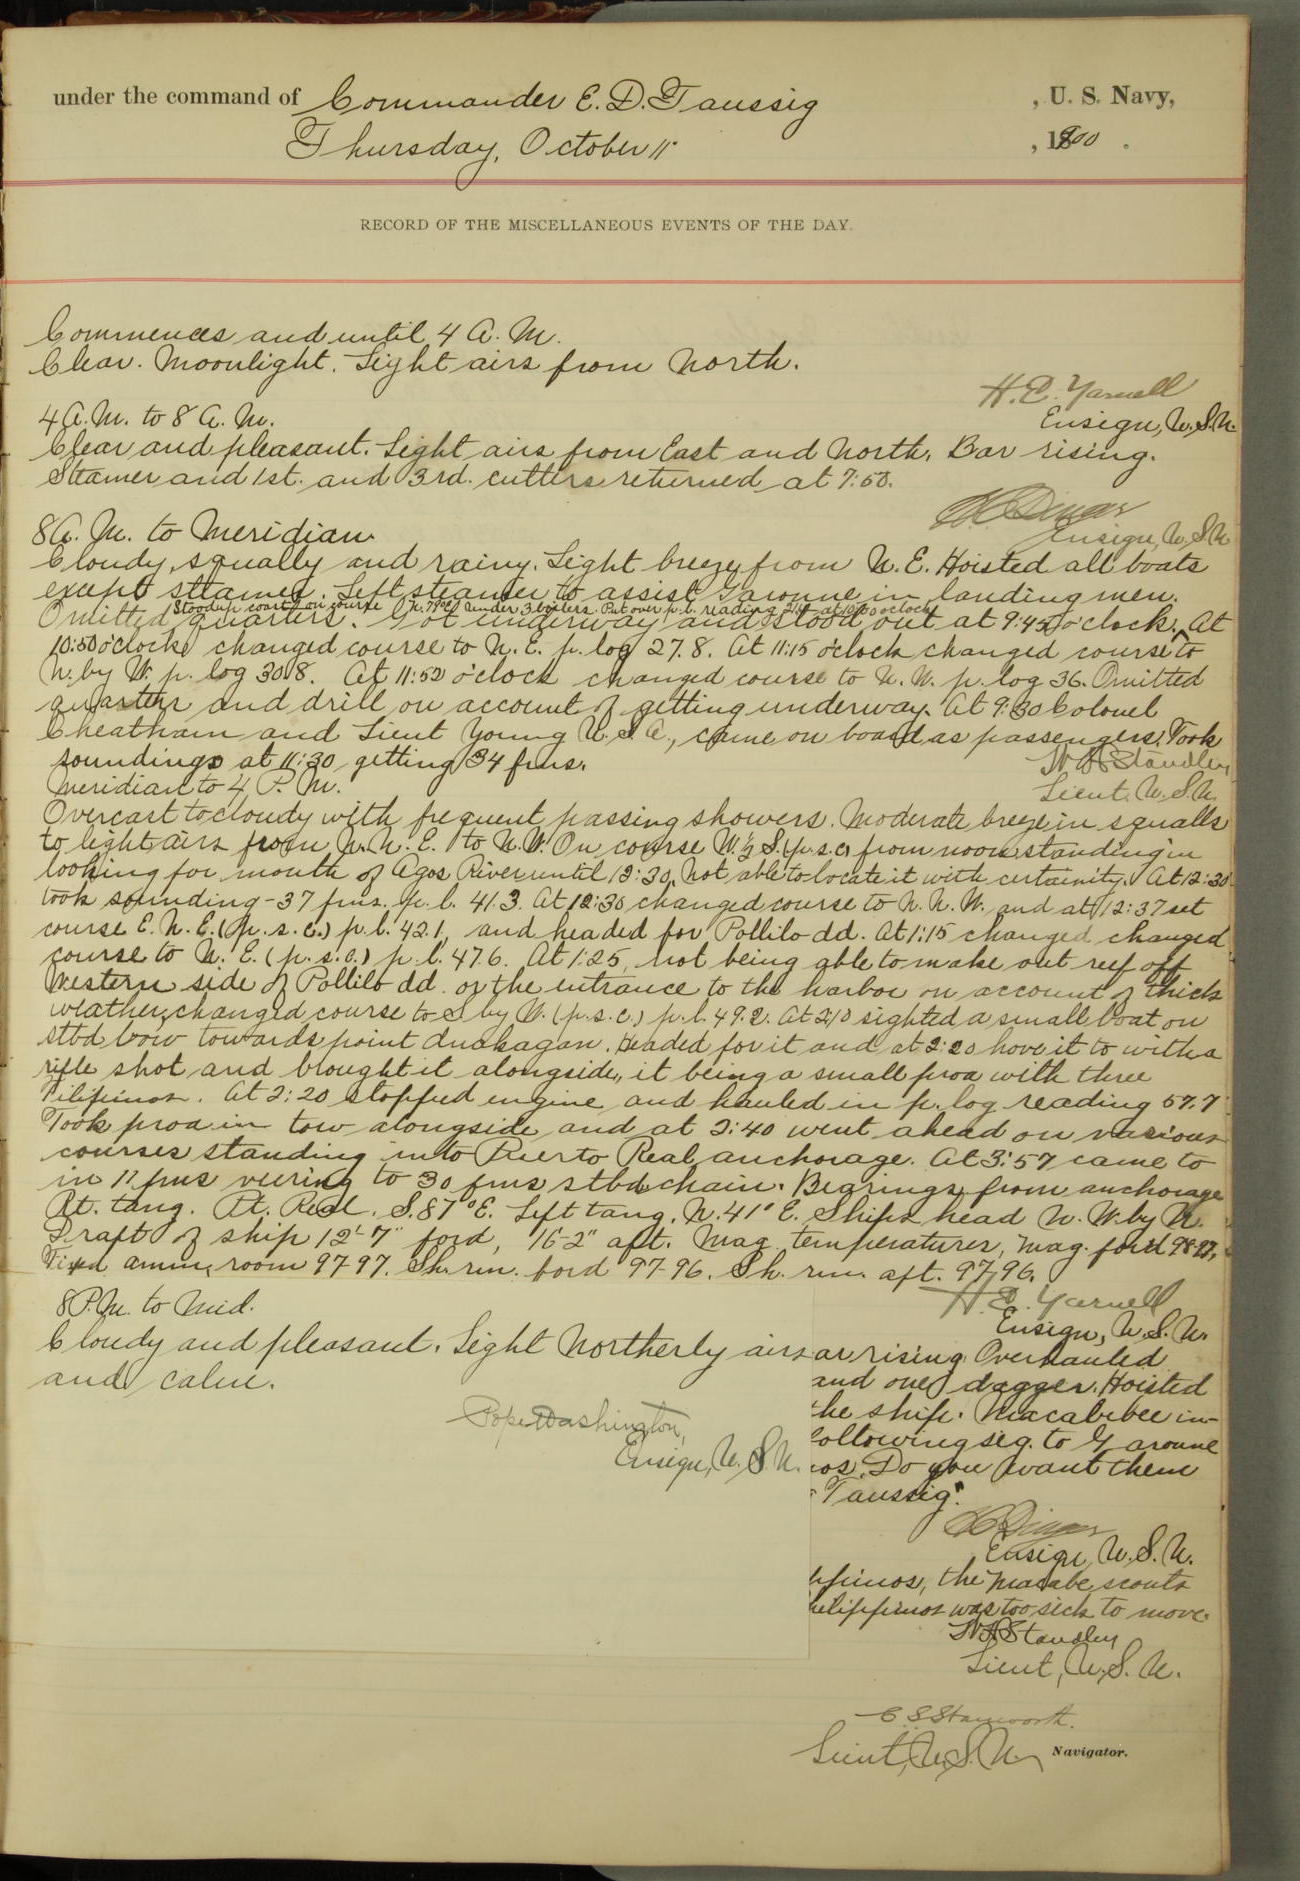 under the command of Commander E. D. Taussig, U. S. Navy,
Thursday, October 11, 1900.
RECORD OF THE MISCELLANEOUS EVENTS OF THE DAY.
Commences and until 4 A. M.
Clear. Moonlight. Light airs from North.
H. E. Yarnell
Ensign, U.S.N.
4 A.M. to 8 A. M.
Clear and pleasant. Light airs from East and North. Bar rising.
Steamer and 1st. and 3rd. cutters returned at 7:50.
Ensign, U.S.N.
8 A. M. to Meridian.
Cloudy, squally and rainy. Light breeze from N. E. Hoisted all boats
except steamer. Left steamer to assist Garonne in landing men.
Stood up coast on course under 3 boilers. Put over p. l. reading at 10:00 o'clock
Omitted quarters. Got underway and stood out at 9:45 o'clock. At
10:50 o'clock changed course to N. E. p. log 27.8. At 11:15 o'clock changed course to
N. by W. p. log 30.8. At 11:50 o'clock changed course to N. W. p. log 36. Omitted
quarters and drill on account of getting underway. At 9:30 Colonel
Cheatham and Lieut Young U. S. A., came on board as passengers. Took
soundings at 11:30 getting 34 fms.
W H Standley
Lieut. U.S.N.
Meridian to 4 P. M.
Overcast to cloudy with frequent passing showers. Moderate breeze in squalls
to light airs from N. N. E. to N. W. On course W. ½ S. (p.s.c) from noon standing in
looking for mouth of Agos River until 12:30. Not able to locate it with certainity. At 12:30
took sounding - 37 fms. p. l. 41.3. At 12:30 changed course to N. N. W. and at 12:37 set
course E. N. E. (p. s. c.) p. l. 42.1, and headed for Pollilo dd. At 1:15 changed changed
course to N. E. (p. s. c.) p. l. 47.6. At 1:25, not being able to make out reef off
Western side of Pollilo dd. or the entrance to the harbor on account of thick
weather, changed course to S by W. (p.s.c.) p. l. 49.2. At 2:10 sighted a small boat on
stbd bow towards point . Headed for it and at 2:20 hove it to with a
rifle shot and brought it alongside, it being a small proa with three
Filipinos. At 2:20 stopped engine and hauled in p. log reading 57.7
Took proa in tow alongside and at 2:40 went ahead on various
courses standing into Puerto Real anchorage. At 3:57 came to
in 11 fms veering to 30 fms stbd chain. Bearings from anchorage
Rt. tang. Pt. Real. S. 87° E. Left tang. N. 41° E. Ships head N. W. by N.
Draft of ship 12'-7" ford, 16'-2" aft. Mag temperatures, mag. ford 98-97,
Fixed ammn room 97-97. Sh. rm. ford 97-96. Sh. rm. aft. 97-96.
H. E. Yarnell
Ensign, U.S.N.
8 P.M. to Mid.
Cloudy and pleasant. Light Northerly airs
and calm.
Pope Washington,
Ensign, U.S.N.
ar rising Overhauled
and one dagger. Hoisted
the ship. Macabebee in-
following sig. to Garonne
nos. Do you want them
Taussig".
Ensign, U.S.N.
ipinos, the Macabe scouts
hilippinos was too sick to move.
W H Standley
Lieut, U.S.N.
C S Stanworth.
Lieut, U.S.N. Navigator.